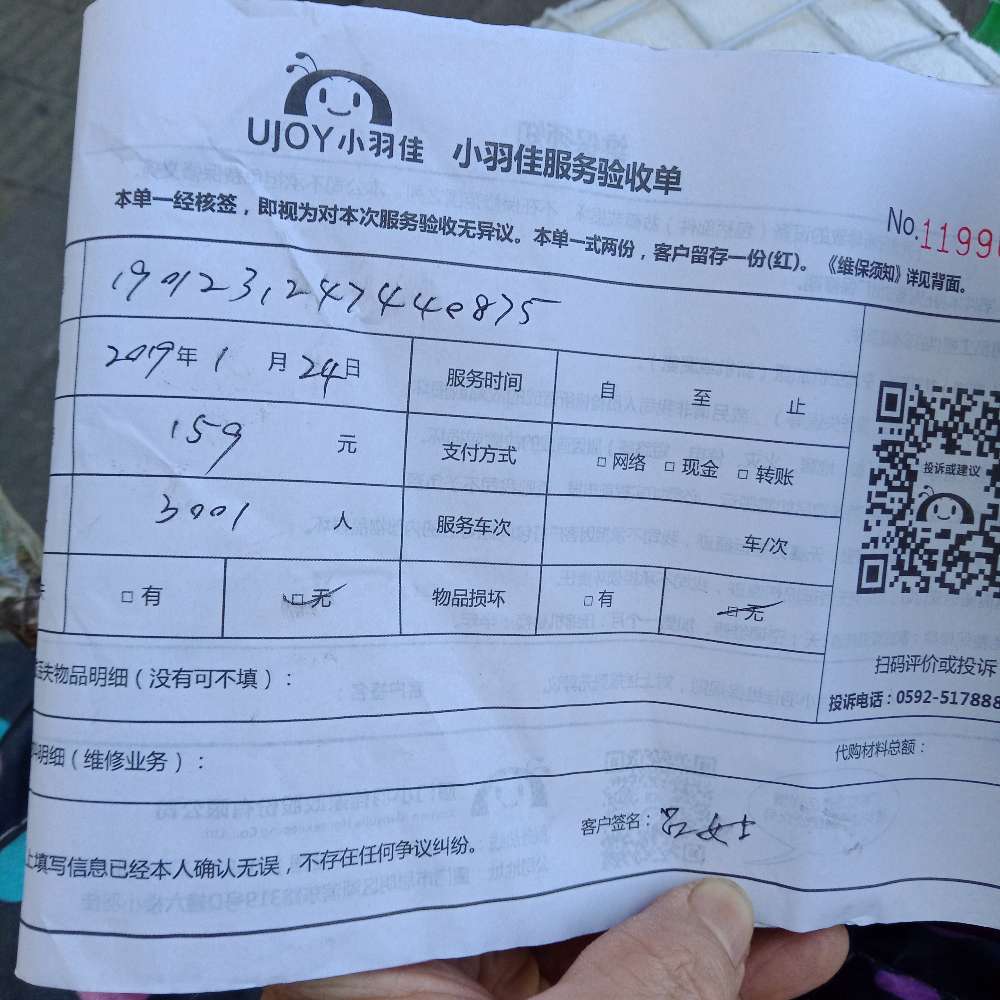 UJOY小羽佳 小羽佳服务验收单
No.1199
本单一经核签，即视为对本次服务验收无异议。本单一式两份，客户留存一份(红)。《维保须知》详见背面。
19012312474440875
2019年1月24日 服务时间 自 至 止
159 元 支付方式 □网络 □现金 □转账
投诉或建议
3001 人 服务车次 车/次
□有 □无 物品损坏 □有 □无
失物品明细（没有可不填）：
扫码评价或投诉
投诉电话：0592-517888
明细（维修业务）：
代购材料总额：
客户签名：吕女士
填写信息已经本人确认无误，不存在任何争议纠纷。